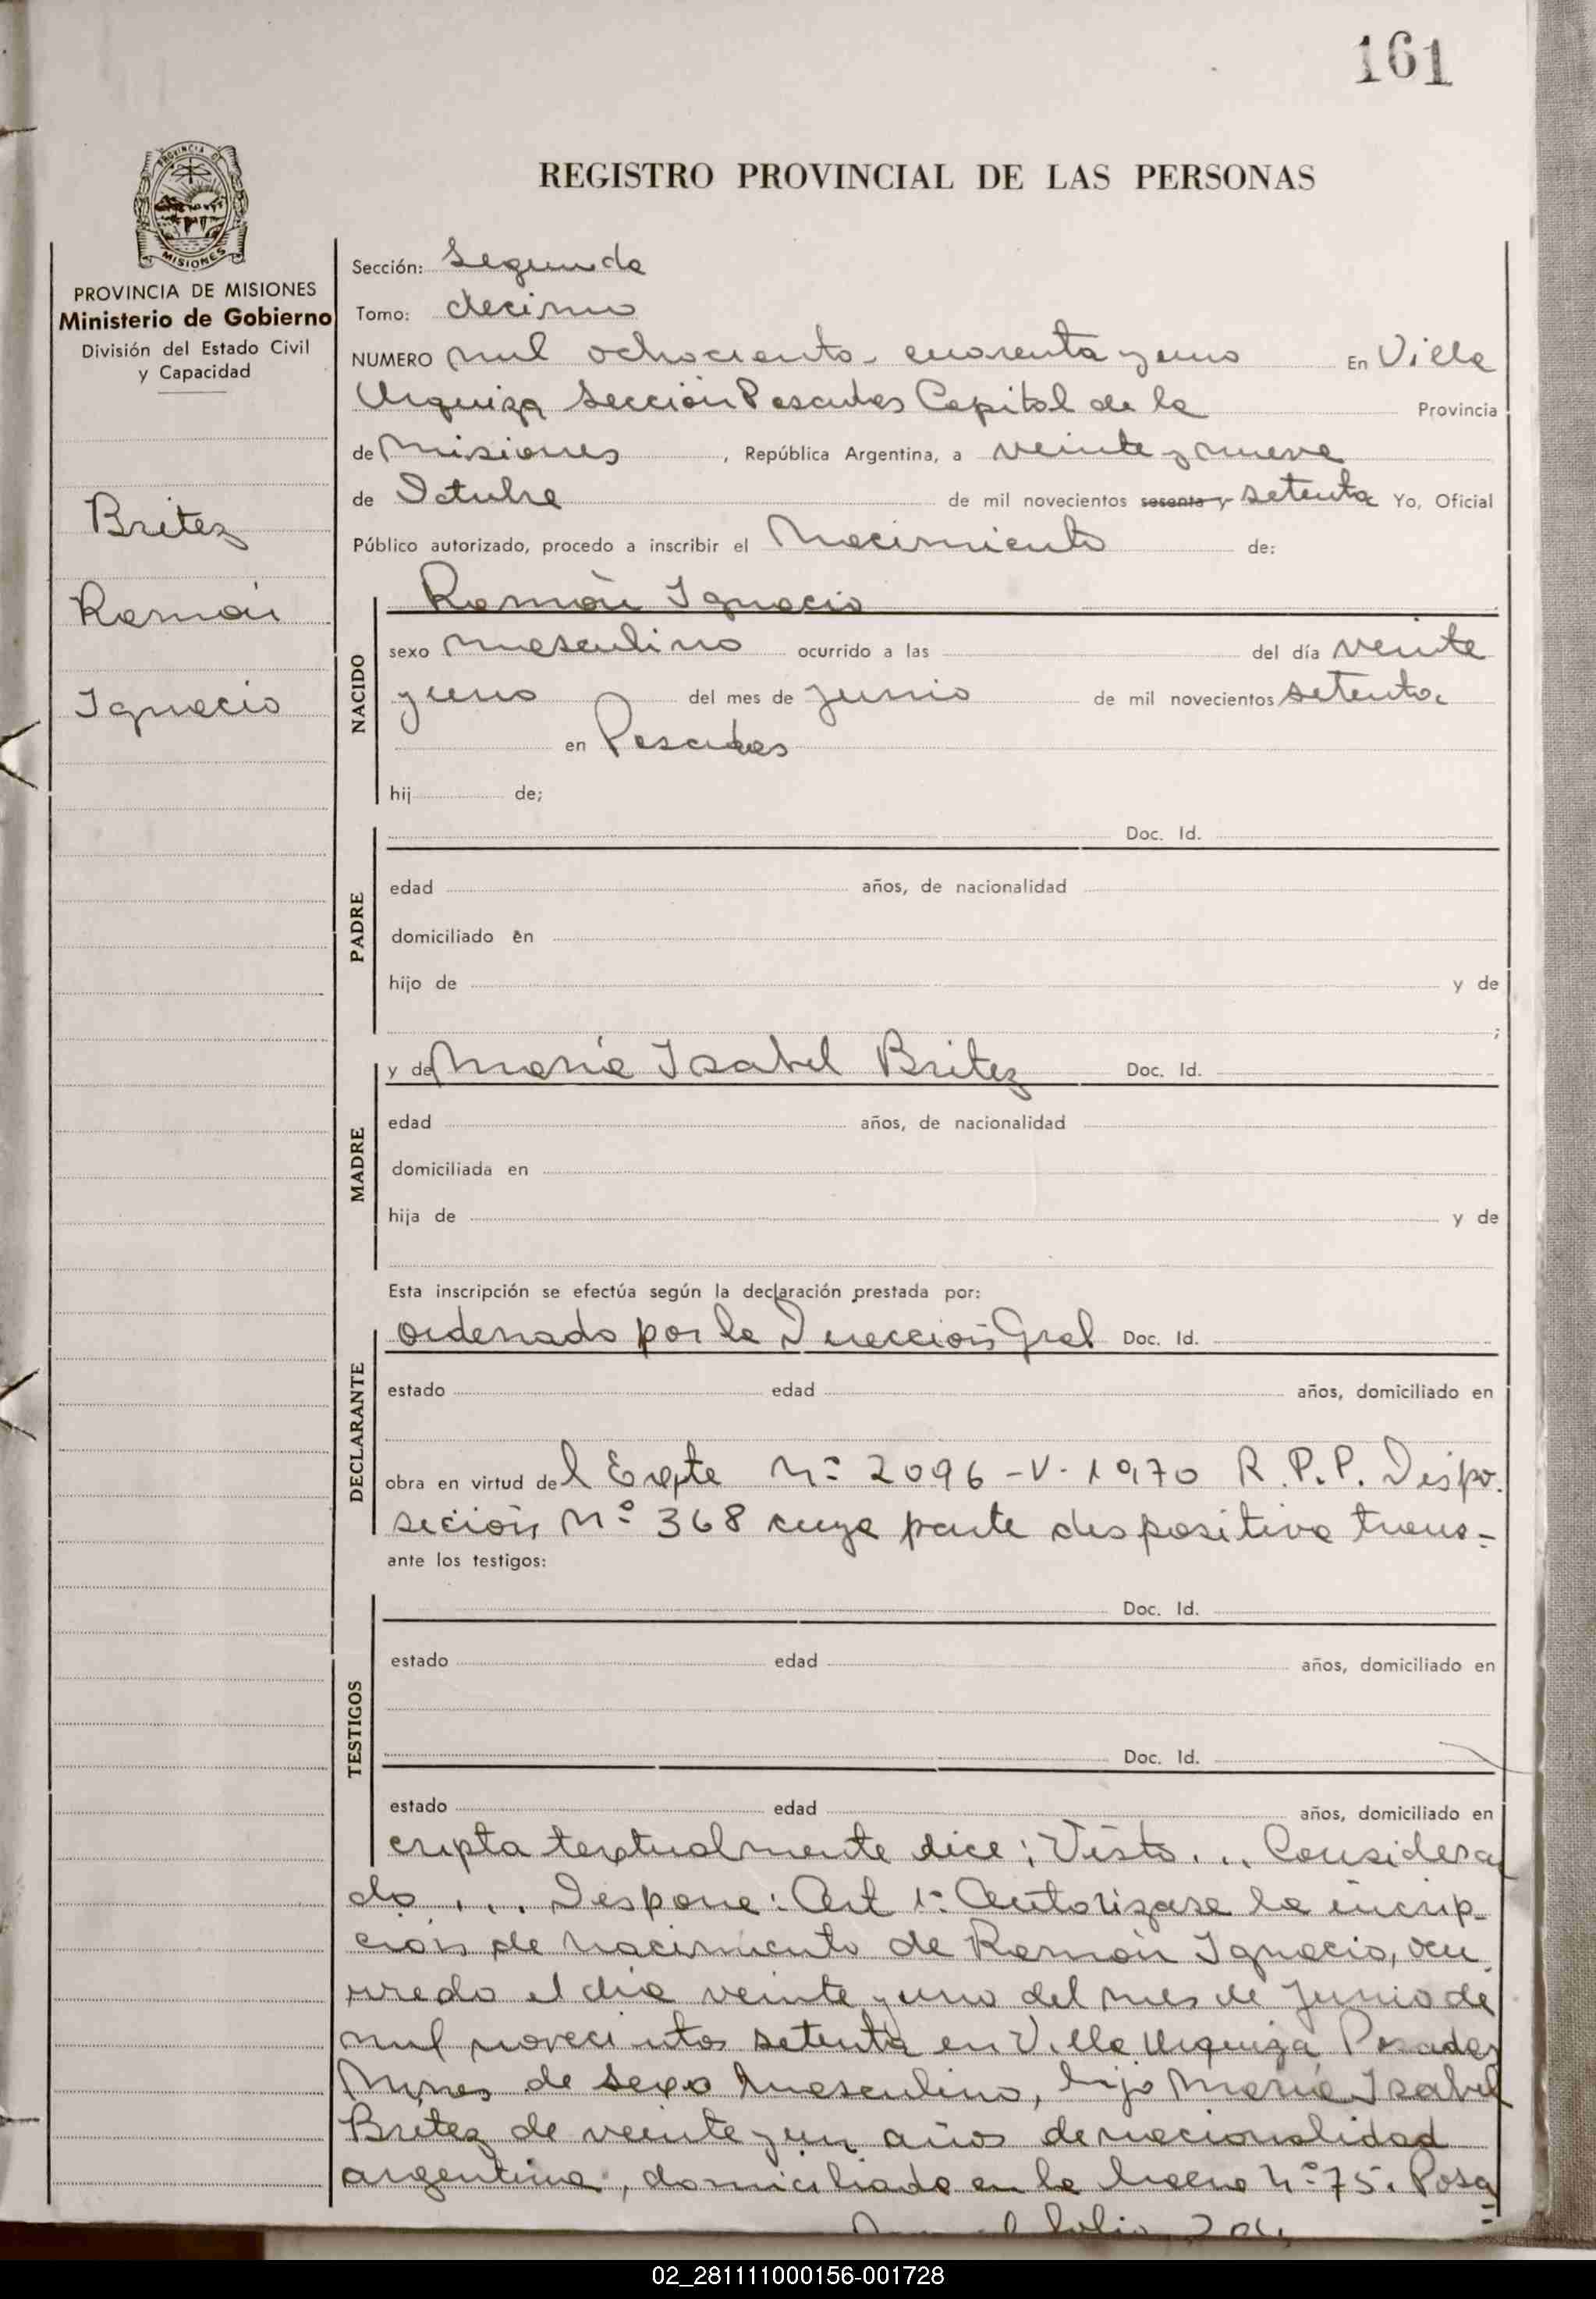 161
PROVINCIA DE MISIONES
REGISTRO PROVINCIAL DE LAS PERSONAS
PROVINCIA DE MISIONES
Ministerio de Gobierno
División del Estado Civil
y Capacidad
Britez
Ramón
Ignacio
Sección: Segunda
Tomo: decimo
NUMERO mil ochociento cuarenta y uno En Villa
Urquiza Sección Posadas Capital de la Provincia
de Misiones, República Argentina, a veinte y nueve
de Octubre de mil novecientos sesenta y setenta Yo, Oficial
Público autorizado, procedo a inscribir el Nacimiento de:
Ramón Ignacio
NACIDO
sexo masculino ocurrido a las del día veinte
y uno del mes de Junio de mil novecientos setenta
en Posadas
hij de;
Doc. Id.
PADRE
edad años, de nacionalidad
domiciliado en
hijo de y de
;
y de María Isabel Britez Doc. Id.
MADRE
edad años, de nacionalidad
domiciliada en
hija de y de
Esta inscripción se efectúa según la declaración prestada por:
ordenado por la Dirección Gral Doc. Id.
DECLARANTE
estado edad años, domiciliado en
obra en virtud del Expte Nº 2096-V-1970 R.P.P. Dispo-
sición Nº 368 cuya parte dispositiva trans-
ante los testigos:
Doc. Id.
TESTIGOS
estado edad años, domiciliado en
Doc. Id.
estado edad años, domiciliado en
cripta textualmente dice: Visto... Consideran
do.... Dispone: Art 1º Autorizase la inscrip-
ción de nacimiento de Ramón Ignacio, ocu
rrido el día veinte y uno del mes de Junio de
mil novecientos setenta en Villa Urquiza Posadas
Mnes de sexo masculino, hijo María Isabel
Britez de veinte y un años de nacionalidad
argentina, domiciliada en la Nº 75. Posa
02_281111000156-001728